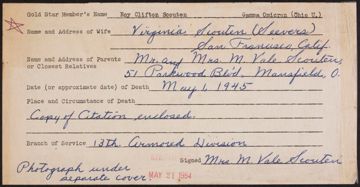 Gold Star Member's Name Roy Clifton Scouten Gamma Omicron (Ohio U.)
Name and Address of Wife Virginia Scouten (Seevers)
San Francisco, Calif.
Name and Address of Parents or Closest Relatives Mr. and Mrs. M. Vale Scouten,
51 Parkwood Blvd. Mansfield, O.
Date (or approximate date) of Death May 1, 1945
Place and Circumstance of Death
Copy of Citation enclosed.
Branch of Service 13th Armored Division
Signed Mrs M. Vale Scouten
Photograph under
separate cover.
MAY 21 1954